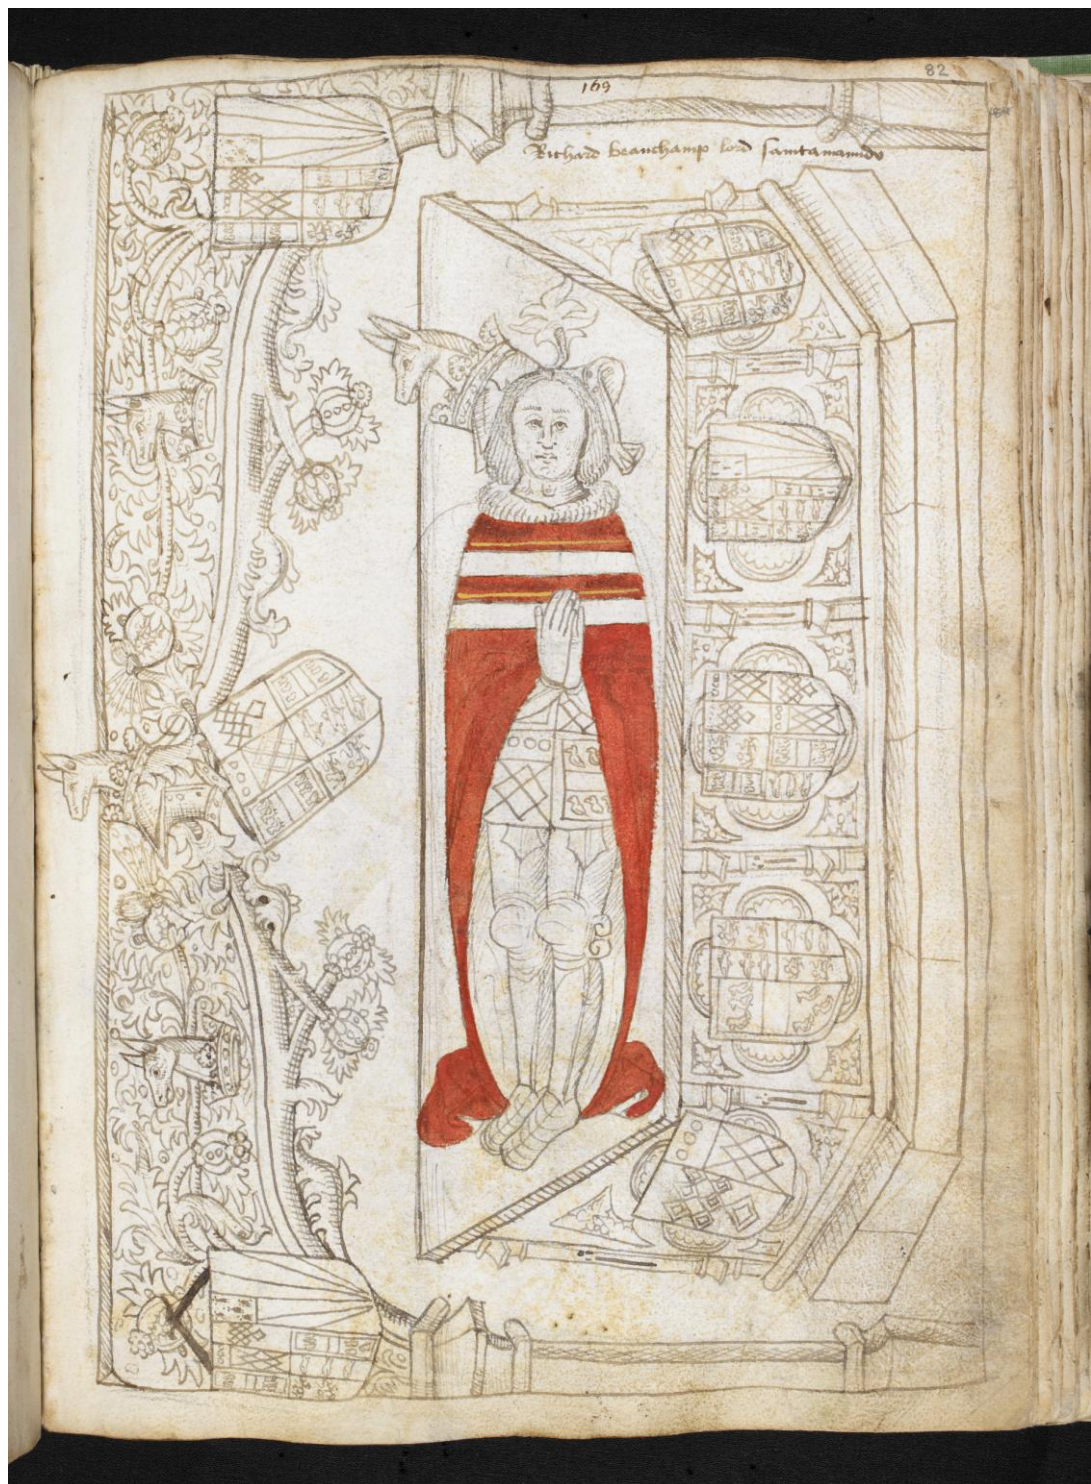 82
169
Richard beauchamp lord saintamando